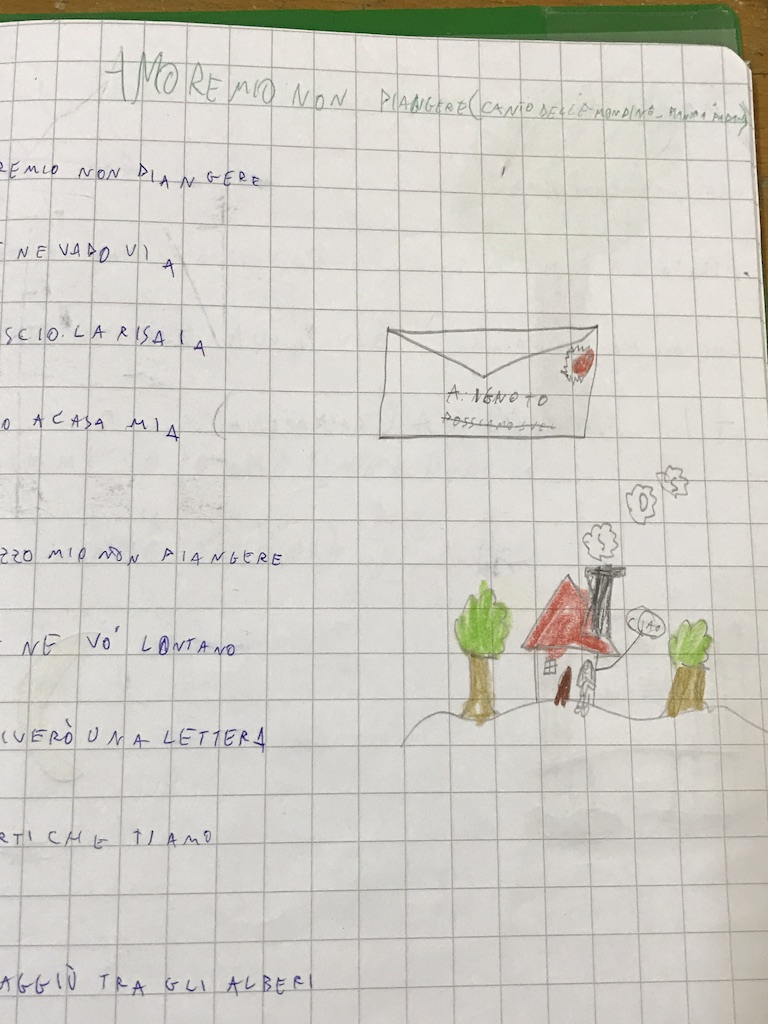 AMORE MIO NON PIANGERE (CANTO DELLE MONDINE - PIANURA PADANA)
REMIO NON PIANGERE
NE VADO VIA
SCIO LA RISAIA
O A CASA MIA
ZZO MIO NON PIANGERE
NE VO' LONTANO
IVERÒ UNA LETTERA
RTI CHE TI AMO
AGGIÙ TRA GLI ALBERI
A:
S
O
S
CIAO